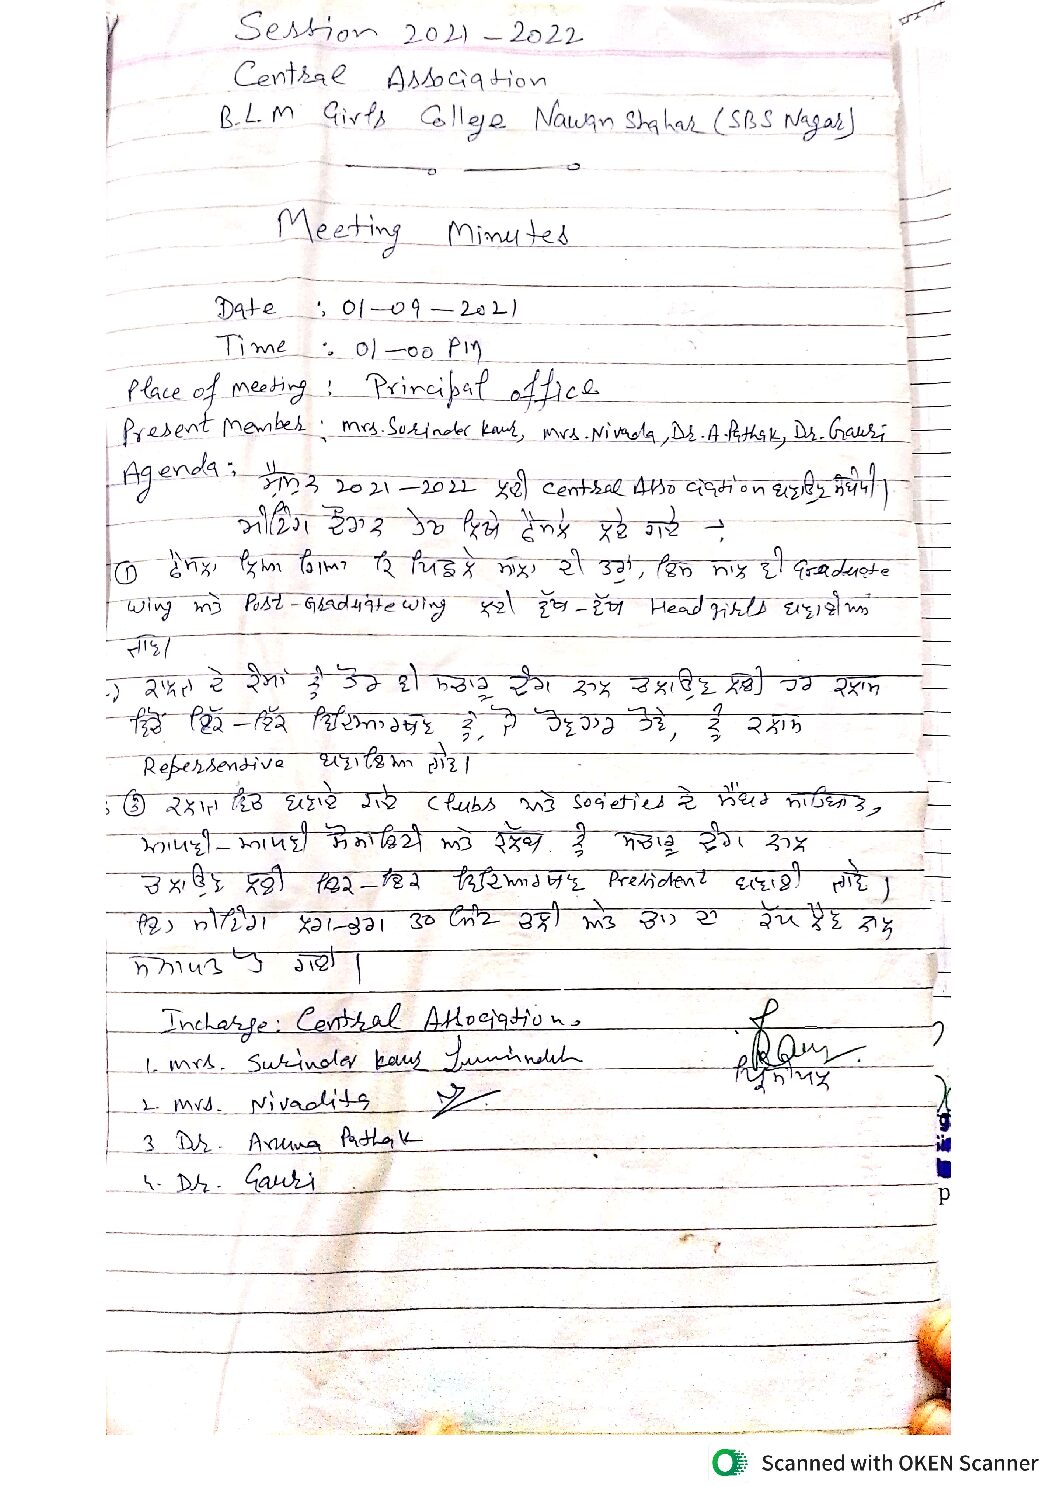 Session 2021-2022
Central Association
B.L.M Girls College Nawanshahar (SBS Nagar)
Meeting Minutes
Date : 01-09-2021
Time : 01-00 PM
Place of meeting : Principal office
Present Member : Mrs. Surinder Kaur, Mrs. Nivada, Dr. A. Pathak, Dr. Gauri
Agenda : ਸੈਸ਼ਨ 2021-2022 ਲਈ Central Association ਬਣਾਉਣ ਸੰਬੰਧੀ।
ਮੀਟਿੰਗ ਦੌਰਾਨ ਹੇਠ ਲਿਖੇ ਫੈਸਲੇ ਲਏ ਗਏ →
① ਫੈਸਲਾ ਲਿਆ ਗਿਆ ਕਿ ਪਿਛਲੇ ਸਾਲਾਂ ਦੀ ਤਰ੍ਹਾਂ, ਇਸ ਸਾਲ ਵੀ Graduate
Wing ਅਤੇ Post-Graduate Wing ਲਈ ਵੱਖ-ਵੱਖ Head girls ਬਣਾਈਆਂ
ਜਾਣ।
ਕਾਲਜ ਦੇ ਕੰਮਾਂ ਨੂੰ ਹੋਰ ਵੀ ਸਚਾਰੂ ਢੰਗ ਨਾਲ ਚਲਾਉਣ ਲਈ ਹਰ ਕਲਾਸ
ਵਿੱਚੋਂ ਇੱਕ-ਇੱਕ ਵਿਦਿਆਰਥਣ ਨੂੰ, ਜੋ ਹੋਣਹਾਰ ਹੋਵੇ, ਨੂੰ ਕਲਾਸ
Repersentive ਬਣਾਇਆ ਜਾਵੇ।
③ ਕਾਲਜ ਵਿੱਚ ਬਣਾਏ ਗਏ Clubs ਅਤੇ Societies ਦੇ ਮੈਂਬਰ ਸਾਹਿਬਾਨ,
ਆਪਣੀ-ਆਪਣੀ ਸੋਸਾਇਟੀ ਅਤੇ ਕਲੱਬ ਨੂੰ ਸਚਾਰੂ ਢੰਗ ਨਾਲ
ਚਲਾਉਣ ਲਈ ਇਕ-ਇਕ ਵਿਦਿਆਰਥਣ President ਬਣਾਈ ਜਾਵੇ।
ਇਹ ਮੀਟਿੰਗ ਲਗ-ਭਗ 30 ਮਿੰਟ ਚਲੀ ਅਤੇ ਚਾਹ ਦਾ ਕੱਪ ਲੈਣ ਨਾਲ
ਸਮਾਪਤ ਹੋ ਗਈ।
Incharge : Central Association.
1. Mrs. Surinder Kaur
ਪ੍ਰਿੰਸੀਪਲ
2. Mrs. Nivadita
3 Dr. Aruna Pathak
4. Dr. Gauri
Scanned with OKEN Scanner